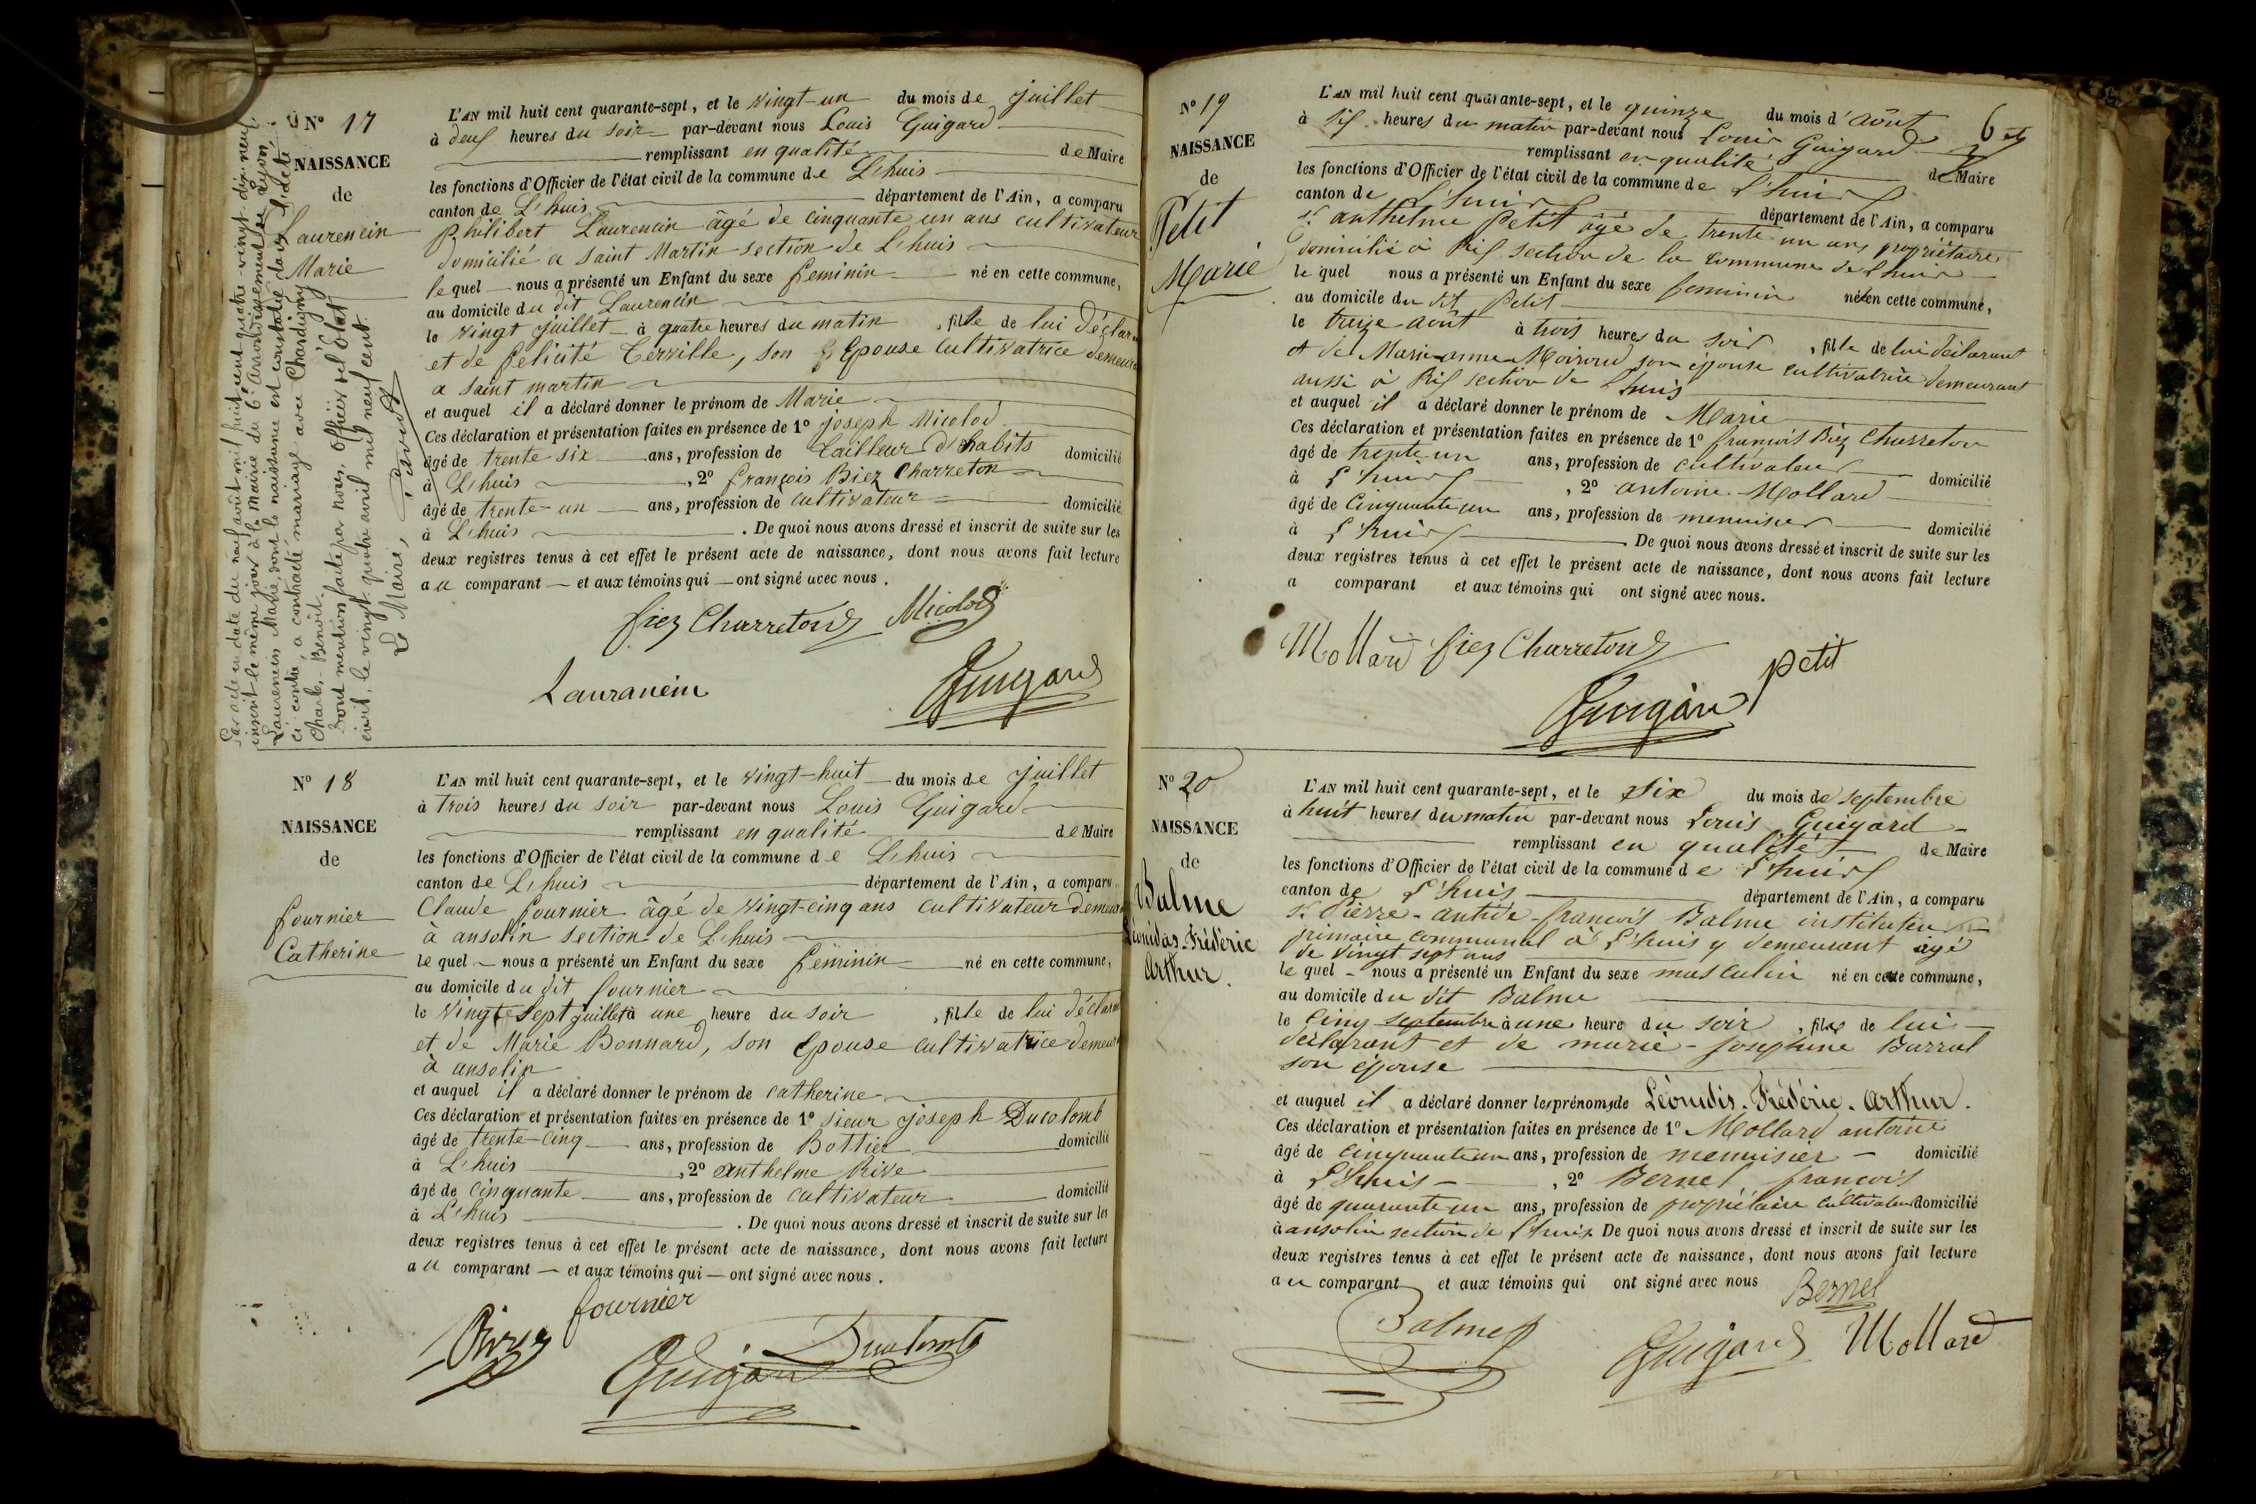 N° 17
NAISSANCE
de
Laurencin
Marie
Par acte en date du neuf avril mil huit cent quatre-vingt dix-neuf,
inscrit le même jour à la mairie du 6e arrondissement de Lyon,
Laurencin Marie, dont la naissance est constatée par l'acte
ci contre, a contracté mariage avec Chardigny
Charles, Benoit.
Dont mention faite par nous, officier de l'état
civil, le vingt quatre avril mil neuf cent.
Le Maire,
L'AN mil huit cent quarante-sept, et le vingt-un du mois de juillet
à deux heures du soir par-devant nous Louis Guigard
remplissant en qualité de Maire
les fonctions d'Officier de l'état civil de la commune de L'huis
canton de L'huis département de l'Ain, a comparu
Philibert Laurencin âgé de cinquante un ans cultivateur
domicilié à saint Martin section de L'huis
lequel nous a présenté un Enfant du sexe féminin né en cette commune,
au domicile du dit Laurencin
le vingt juillet à quatre heures du matin, fille de lui déclarant
et de félicité Cerville, son Epouse cultivatrice demeurant
a saint martin
et auquel il a déclaré donner le prénom de Marie
Ces déclaration et présentation faites en présence de 1° joseph Micolod
âgé de trente six ans, profession de tailleur d'habits domicilié
à L'huis, 2° françois Biez Charreton
âgé de trente-un ans, profession de cultivateur domicilié
à L'huis. De quoi nous avons dressé et inscrit de suite sur les
deux registres tenus à cet effet le présent acte de naissance, dont nous avons fait lecture
au comparant et aux témoins qui ont signé avec nous.
Biez Charreton Micolod
Lauranein Guigard
N° 18
NAISSANCE
de
fournier
Catherine
L'AN mil huit cent quarante-sept, et le vingt-huit du mois de juillet
à trois heures du soir par-devant nous Louis Guigard
remplissant en qualité de Maire
les fonctions d'Officier de l'état civil de la commune de L'huis
canton de L'huis département de l'Ain, a comparu
Claude fournier âgé de vingt-cinq ans cultivateur demeurant
à ansolin section de L'huis
lequel nous a présenté un Enfant du sexe féminin né en cette commune,
au domicile du dit fournier
le vingt sept juillet à une heure du soir, fille de lui déclarant
et de Marie Bonnard, son Epouse cultivatrice demeurant
à ansolin
et auquel il a déclaré donner le prénom de catherine
Ces déclaration et présentation faites en présence de 1° sieur joseph Ducolomb
âgé de trente-cinq ans, profession de Bottier domicilié
à L'huis, 2° anthelme Rive
âgé de cinquante ans, profession de cultivateur domicilié
à L'huis. De quoi nous avons dressé et inscrit de suite sur les
deux registres tenus à cet effet le présent acte de naissance, dont nous avons fait lecture
au comparant et aux témoins qui ont signé avec nous.
fournier
Guigard Ducolomb
6
N° 19
NAISSANCE
de
Petit
Marie
L'AN mil huit cent quarante-sept, et le quinze du mois d'août
à six heures du matin par-devant nous Louis Guigard
remplissant en qualité de Maire
les fonctions d'Officier de l'état civil de la commune de L'huis
canton de L'huis département de l'Ain, a comparu
sr anthelme Petit âgé de trente un ans propriétaire
domicilié à Rix section de la commune de L'huis
lequel nous a présenté un Enfant du sexe feminin née en cette commune,
au domicile du dit Petit
le treize août à trois heures du soir, fille de lui déclarant
et de Marie-anne Moiroud son épouse cultivatrice demeurant
aussi à Rix section de L'huis
et auquel il a déclaré donner le prénom de Marie
Ces déclaration et présentation faites en présence de 1° françois Biez Charreton
âgé de trente un ans, profession de cultivateur domicilié
à L'huis, 2° antoine Mollard
âgé de Cinquante un ans, profession de menuisier domicilié
à L'huis De quoi nous avons dressé et inscrit de suite sur les
deux registres tenus à cet effet le présent acte de naissance, dont nous avons fait lecture
a comparant et aux témoins qui ont signé avec nous.
Mollard Biez Charreton petit
Guigard
N° 20
NAISSANCE
de
Balme
Léonidas-Frédéric
Arthur.
L'AN mil huit cent quarante-sept, et le six du mois de septembre
à huit heures du matin par-devant nous Louis Guigard
remplissant en qualité de Maire
les fonctions d'Officier de l'état civil de la commune de L'huis
canton de L'huis département de l'Ain, a comparu
sr Pierre-antide-françois Balme instituteur
primaire communal à L'huis y demeurant âgé
de vingt sept ans
lequel nous a présenté un Enfant du sexe masculin né en cette commune,
au domicile du dit Balme
le cinq septembre à une heure du soir, fils de lui
déclarant et de marie-joséphine Barral
son épouse
et auquel il a déclaré donner les prénoms de Léonidis. Frédéric. Arthur.
Ces déclaration et présentation faites en présence de 1° Mollard antoine
âgé de cinquante un ans, profession de menuisier domicilié
à L'huis, 2° Bernel françois
âgé de quarante un ans, profession de propriétaire cultivateur domicilié
à ansolin section de L'huis De quoi nous avons dressé et inscrit de suite sur les
deux registres tenus à cet effet le présent acte de naissance, dont nous avons fait lecture
au comparant et aux témoins qui ont signé avec nous
Bernel
Balme Guigard Mollard